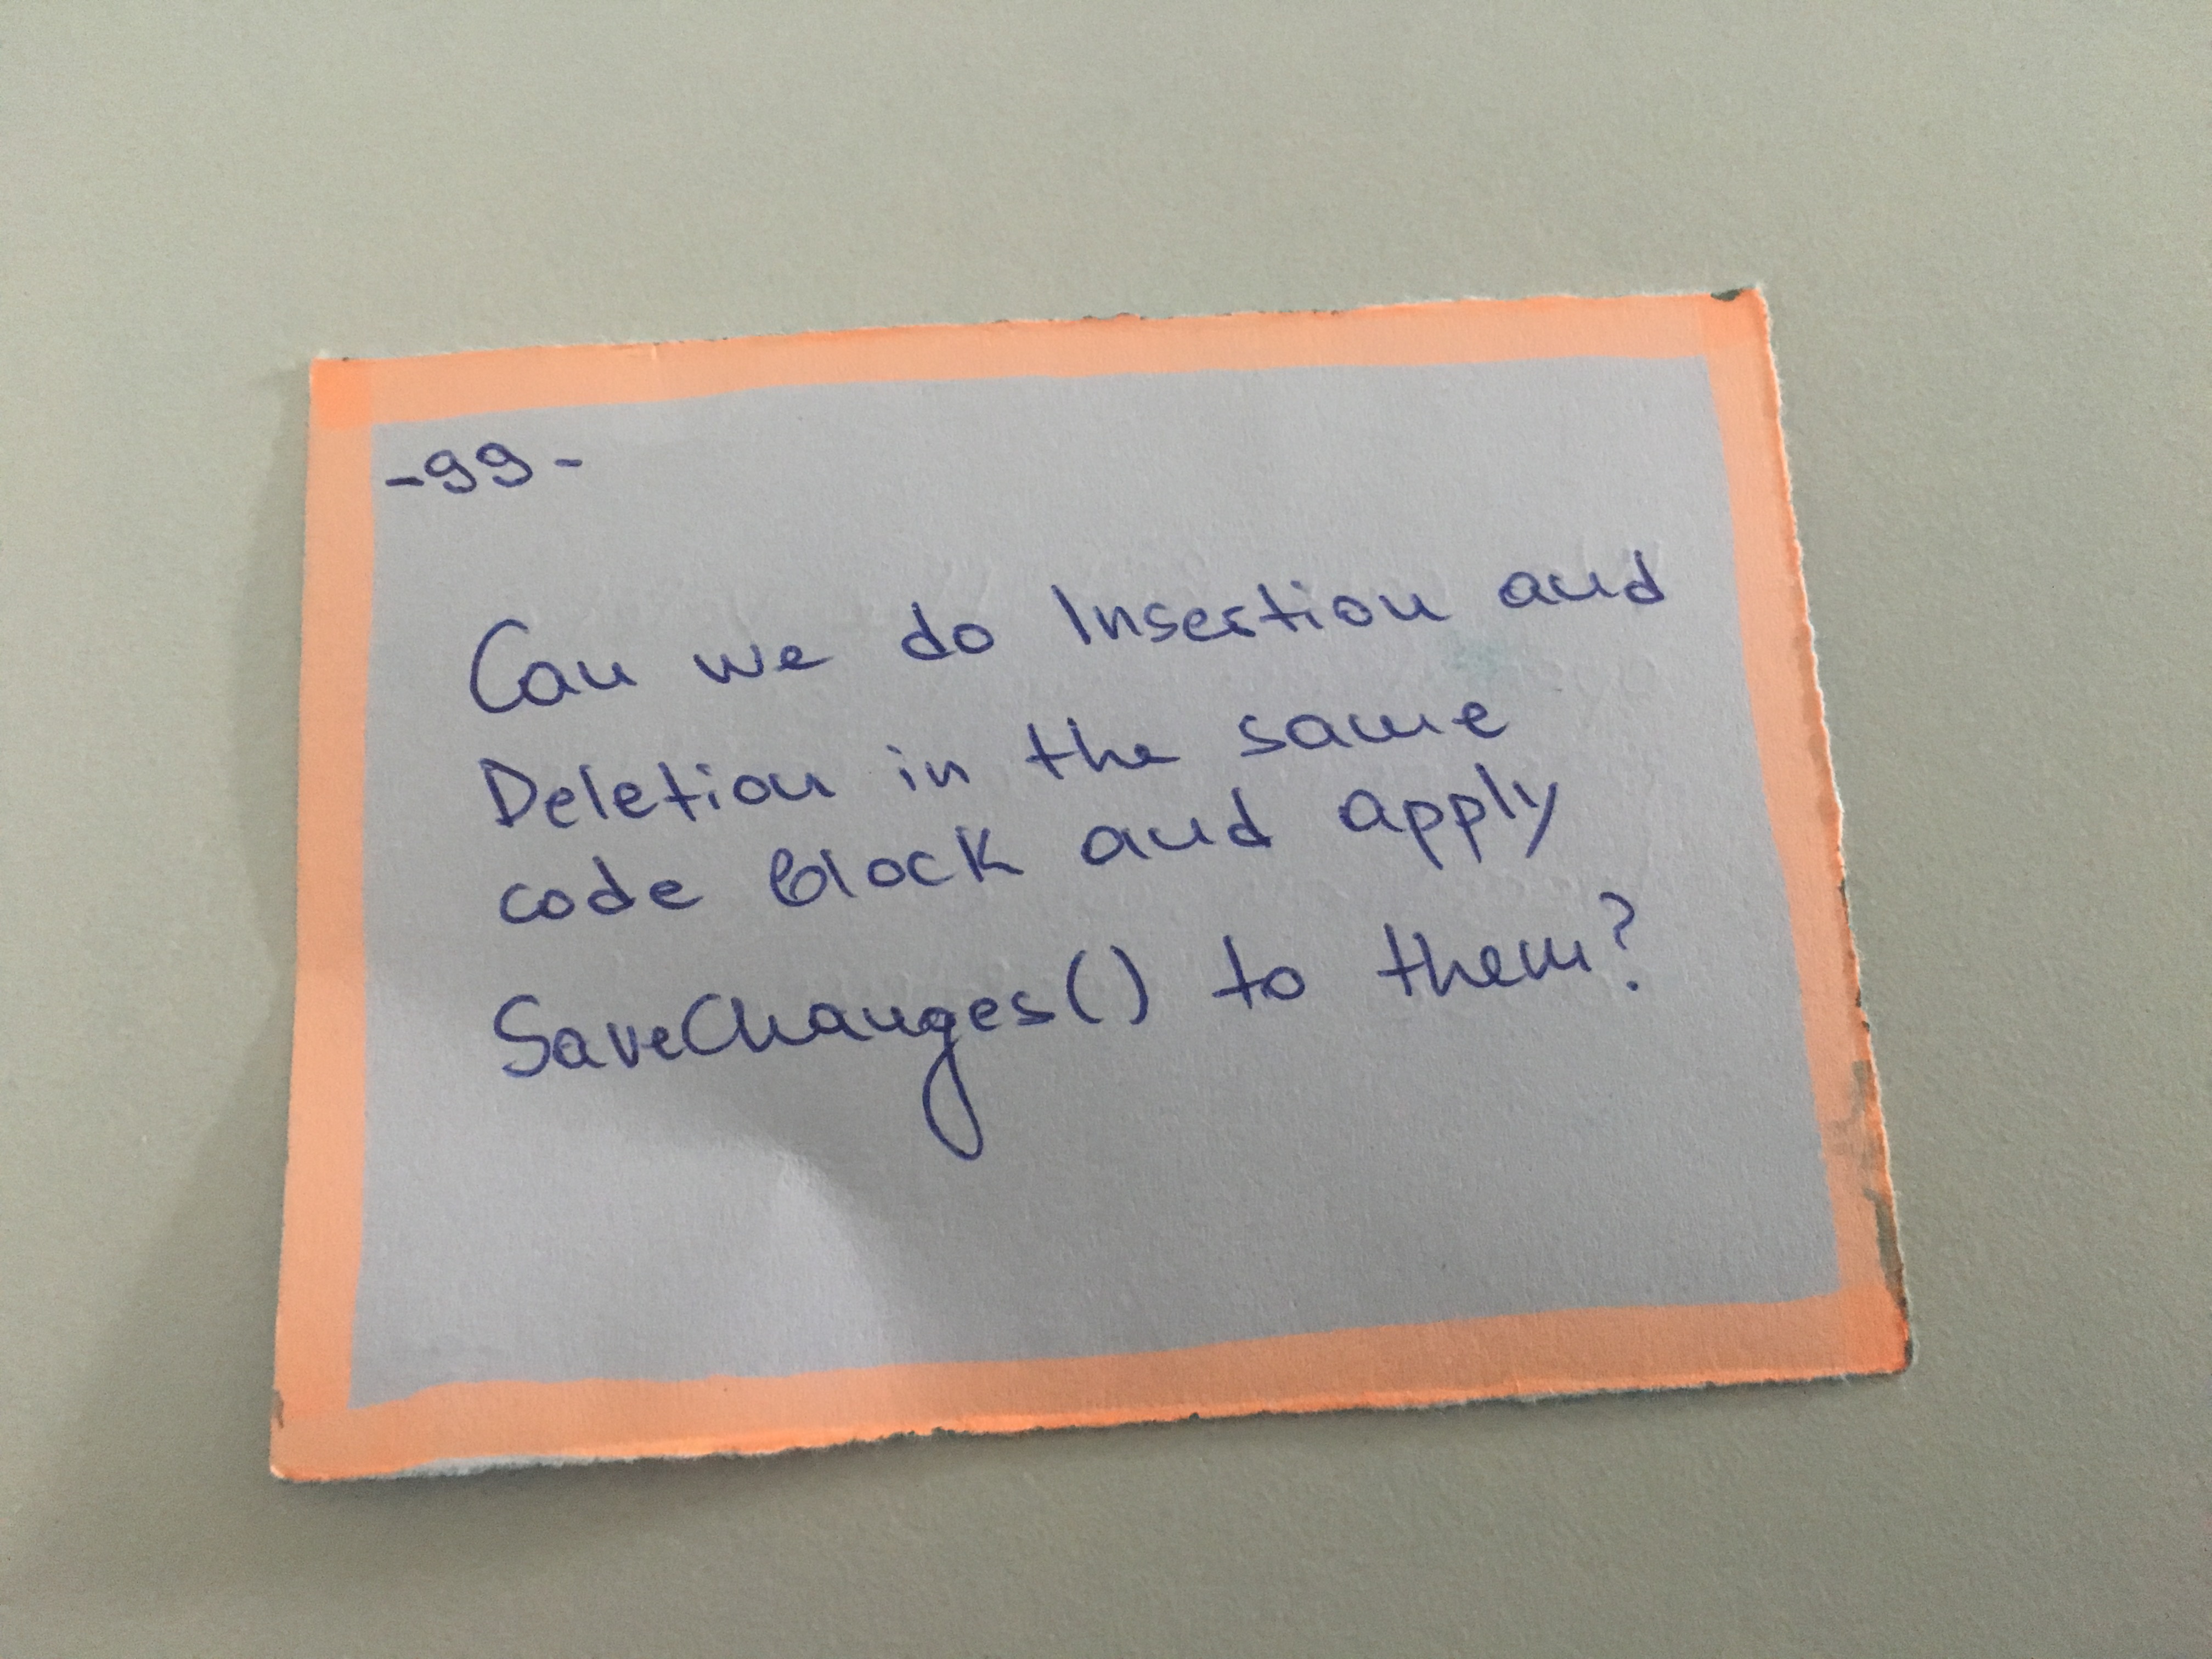 -99-
Can we do Insertion and
Deletion in the same
code block and apply
SaveChanges() to them?